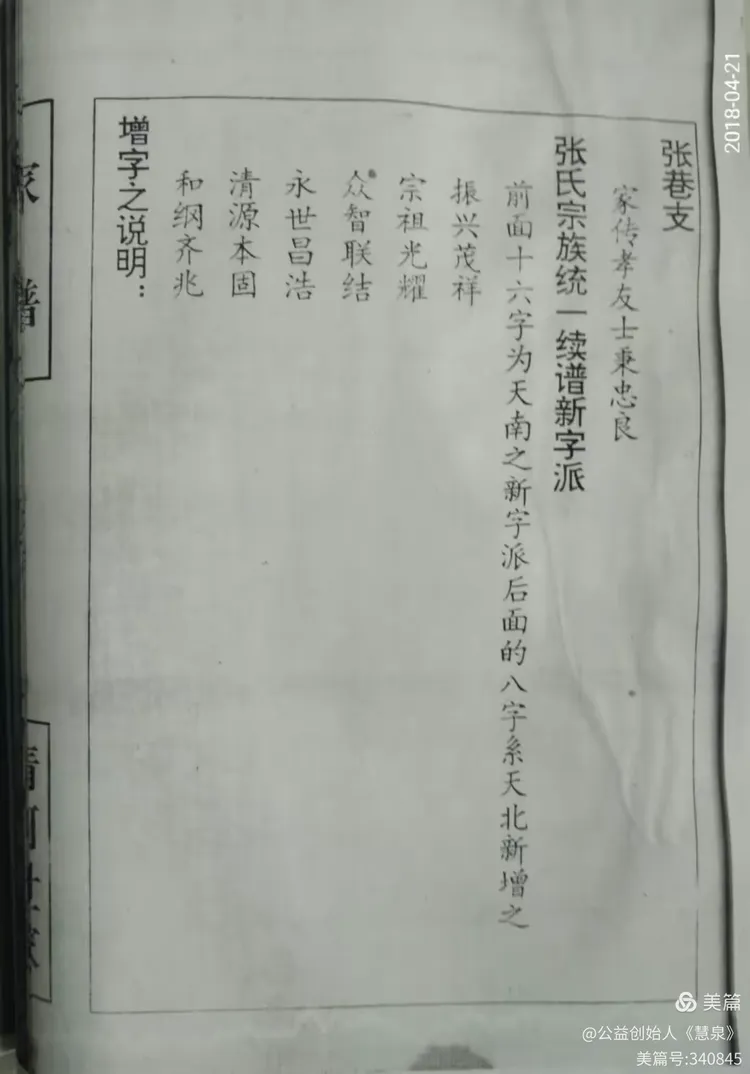 张巷支
家传孝友士秉忠良
张氏宗族统一续谱新字派
前面十六字为天南之新字派后面的八字系天北新增之
振兴茂祥
宗祖光耀
众智联结
永世昌浩
清源本固
和纲齐兆
增字之说明：
家谱
清河
2018-04-21
美篇
@公益创始人《慧泉》
美篇号:340845